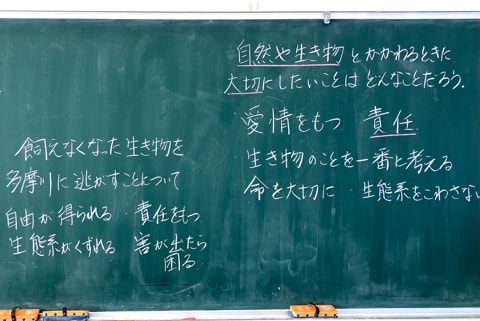 自然や生き物とかかわるときに
大切にしたいことはどんなことだろう.
愛情をもつ 責任
生き物のことを一番に考える
命を大切に 生態系をこわさない
飼えなくなった生き物を
多摩川に逃がすことについて
自由が得られる 責任をもつ
生態系がくずれる 害が出たら
困る